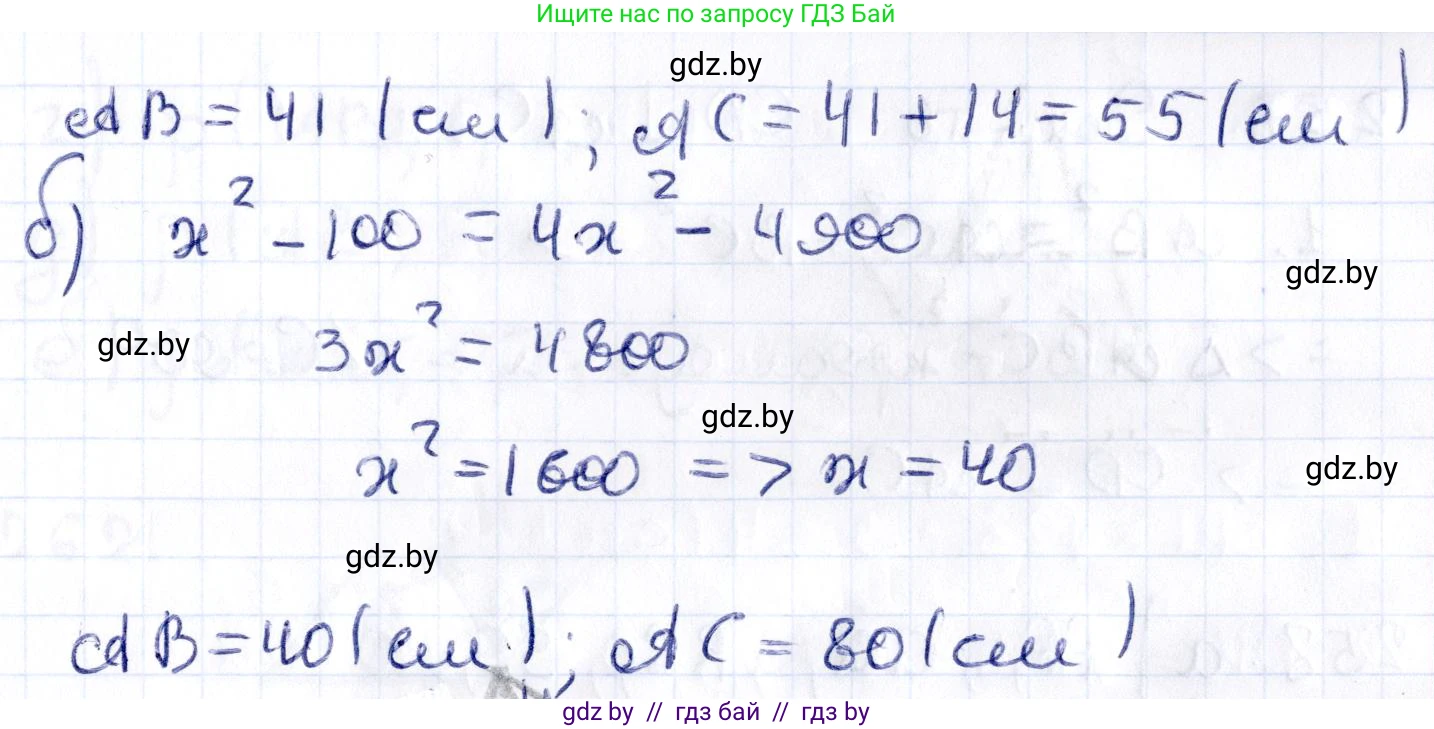 Ищите нас по запросу ГДЗ Бай
gdz.by
AB = 41 (см); AC = 41 + 14 = 55 (см)
б) x² - 100 = 4x² - 4900
gdz.by
3x² = 4800
gdz.by
gdz.by
x² = 1600 => x = 40
gdz.by
gdz.by
AB = 40 (см); AC = 80 (см)
gdz by // гдз бай // гдз by